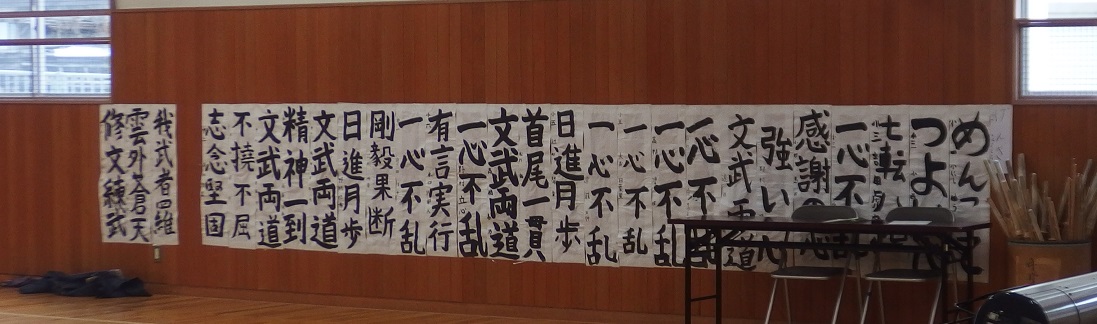 めん
つよ
七転
一心不
感謝の心
強い心
文武両道
一心不乱
一心不乱
一心不乱
一心不乱
日進月歩
首尾一貫
文武両道
一心不乱
有言実行
一心不乱
剛毅果断
日進月歩
文武両道
精神一到
文武両道
不撓不屈
志念堅国
我武者四維
雲外蒼天
修文練武